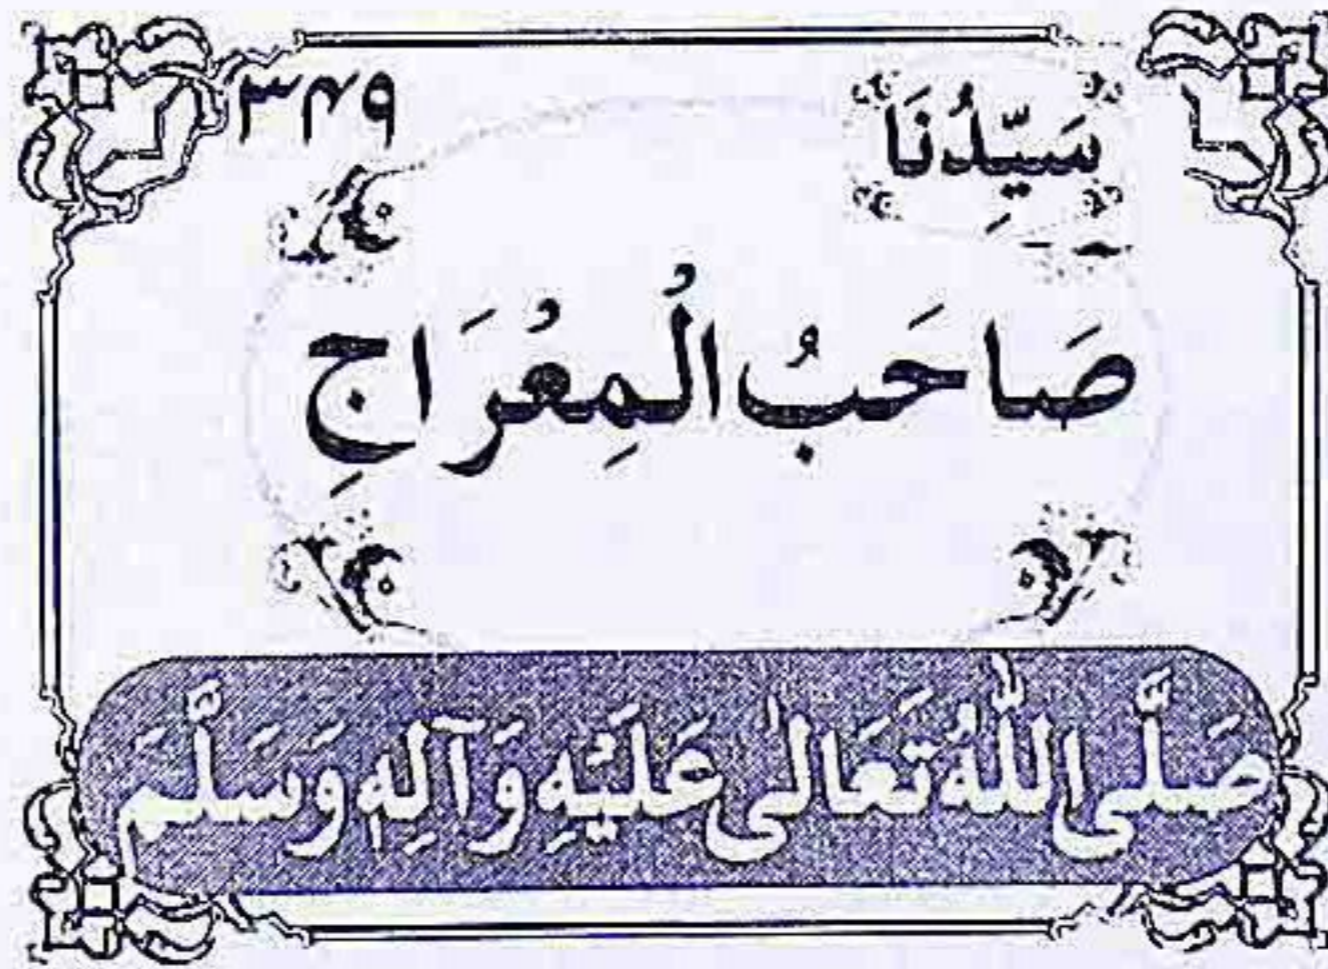 سَيِّدُنَا ۳۴۹
صَاحَبُ الْمِعْرَاجِ
صَلَّى اللّٰهُ تَعَالٰى عَلَيْهِ وَآلِهٖ وَسَلَّمَ